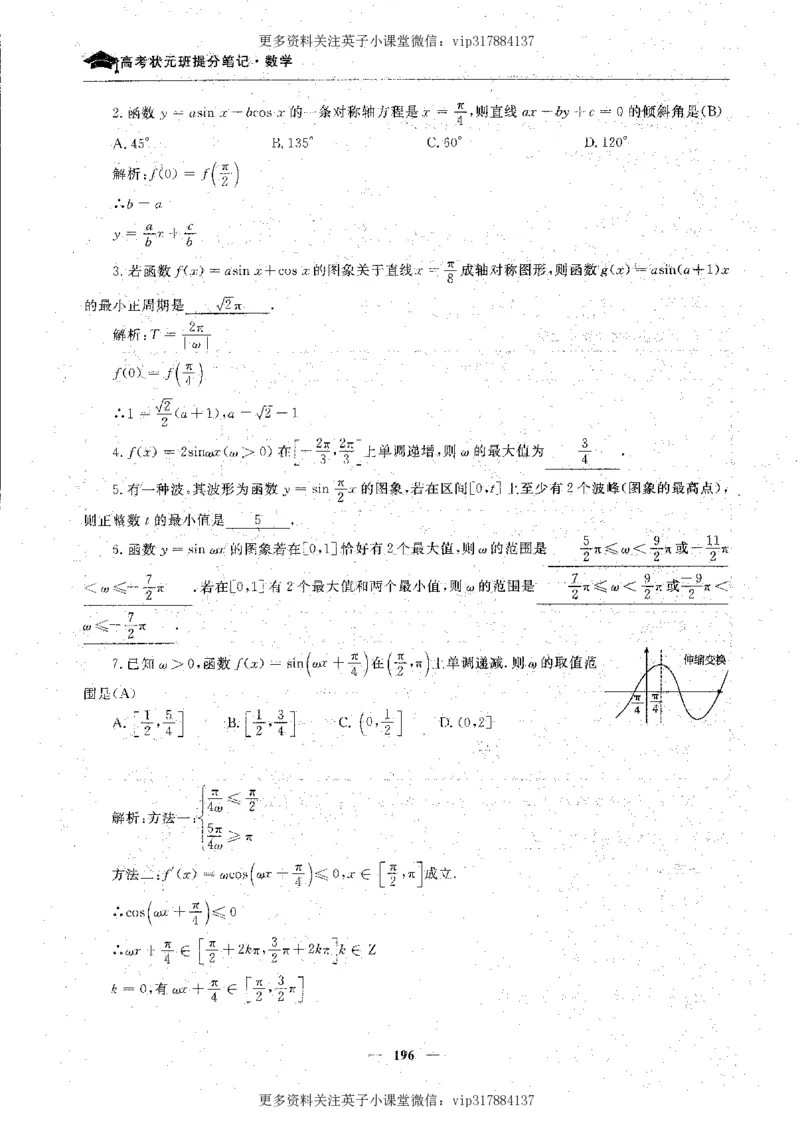 更多资料关注英子小课堂微信：vip317884137
高考状元班提分笔记·数学
2. 函数 y = asin x − bcos x 的一条对称轴方程是 x = π/4，则直线 ax − by + c = 0 的倾斜角是(B)
A. 45° B. 135° C. 60° D. 120°
解析：f(0) = f(π/2)
∴b = a
y = a/b x + c/b
3. 若函数 f(x) = asin x + cos x 的图象关于直线 x = π/8 成轴对称图形，则函数 g(x) = asin(a+1)x
的最小正周期是 √2π .
解析：T = 2π/|ω|
f(0) = f(π/4)
∴1 = √2/2(a+1), a = √2 − 1
4. f(x) = 2sinωx(ω > 0) 在[−2π/3, 2π/3]上单调递增，则 ω 的最大值为 3/4 .
5. 有一种波，其波形为函数 y = sin π/2 x 的图象，若在区间[0,t]上至少有 2 个波峰(图象的最高点)，
则正整数 t 的最小值是 5 .
6. 函数 y = sin ωx 的图象若在[0,1]恰好有 2 个最大值，则 ω 的范围是 5/2π ≤ ω < 9/2π 或 −11/2π
< ω ≤ −7/2π . 若在[0,1]有 2 个最大值和两个最小值，则 ω 的范围是 7/2π ≤ ω < 9/2π 或 −9/2π <
ω ≤ −7/2π .
7. 已知 ω > 0，函数 f(x) = sin(ωx + π/4)在(π/2, π)上单调递减. 则 ω 的取值范
围是(A)
伸缩变换
π/4 π/4
A. [1/2, 5/4] B. [1/2, 3/4] C. (0, 1/2] D. (0,2]
解析：方法一：{π/4ω ≤ π/2
5π/4ω ≥ π
方法二：f′(x) = ωcos(ωx + π/4) ≤ 0, x ∈ [π/2, π]成立.
∴cos(ωx + π/4) ≤ 0
∴ωx + π/4 ∈ [π/2 + 2kπ, 3/2π + 2kπ] k ∈ Z
k = 0，有 ωx + π/4 ∈ [π/2, 3/2π]
— 196 —
更多资料关注英子小课堂微信：vip317884137